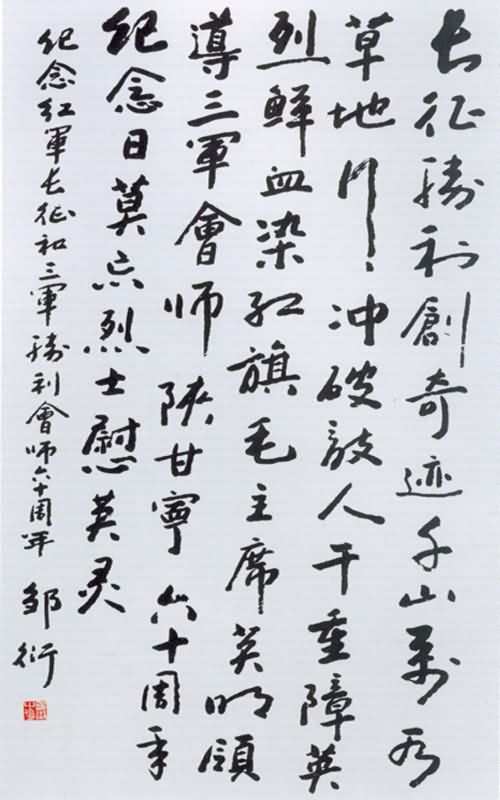 长征勝利創奇迹千山萬水
草地行冲破敌人千重障英
烈鲜血染红旗毛主席英明領
導三軍會师陕甘寧六十周年
纪念日莫忘烈士慰英灵
纪念红軍长征和三軍勝利會师六十周年 邹衍